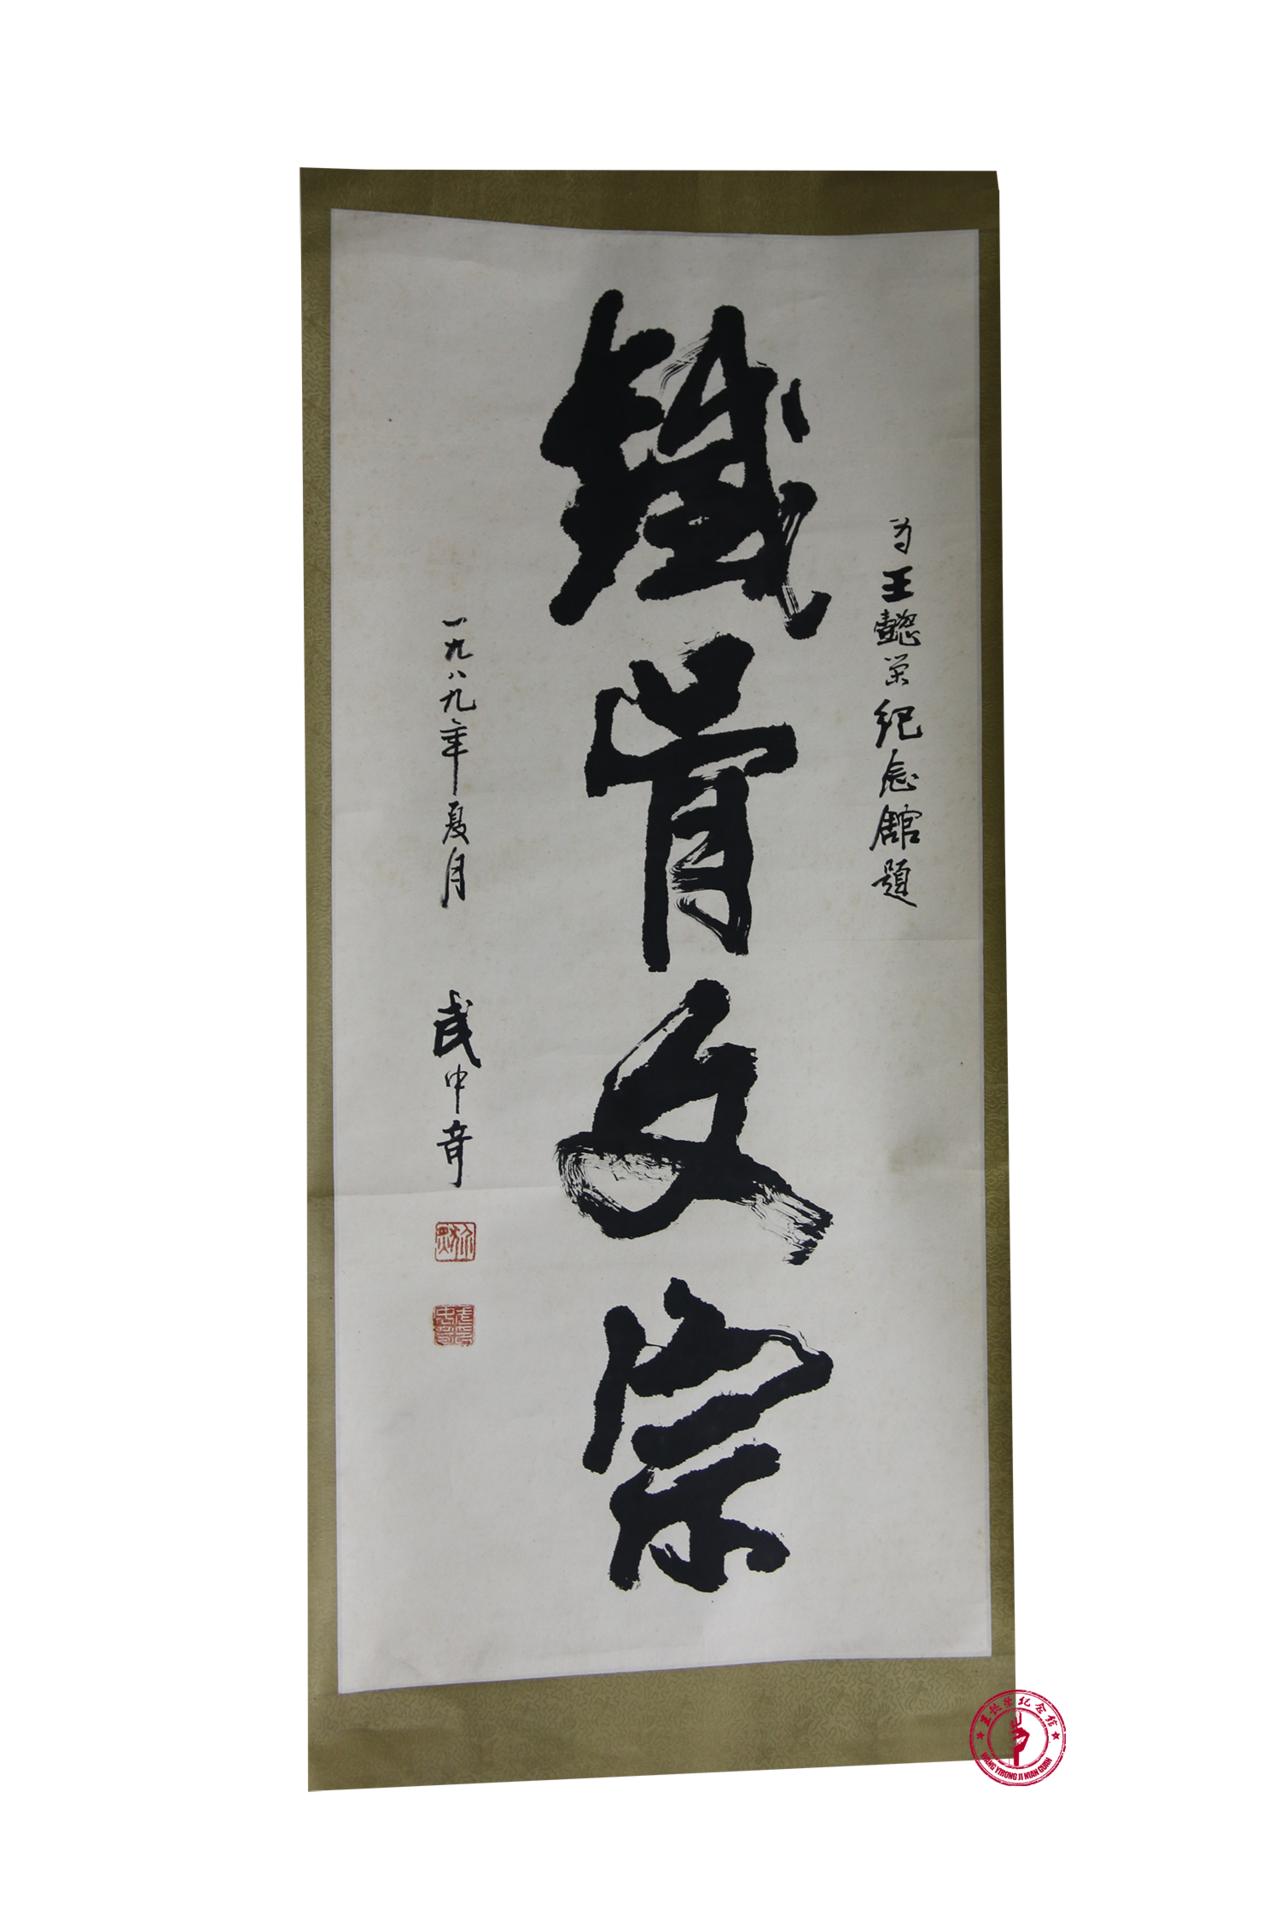 为王懿荣纪念館題
鐵骨文宗
一九八九年夏月 武中奇
王懿荣纪念馆
WANG YIRONG JI NIAN GUAN